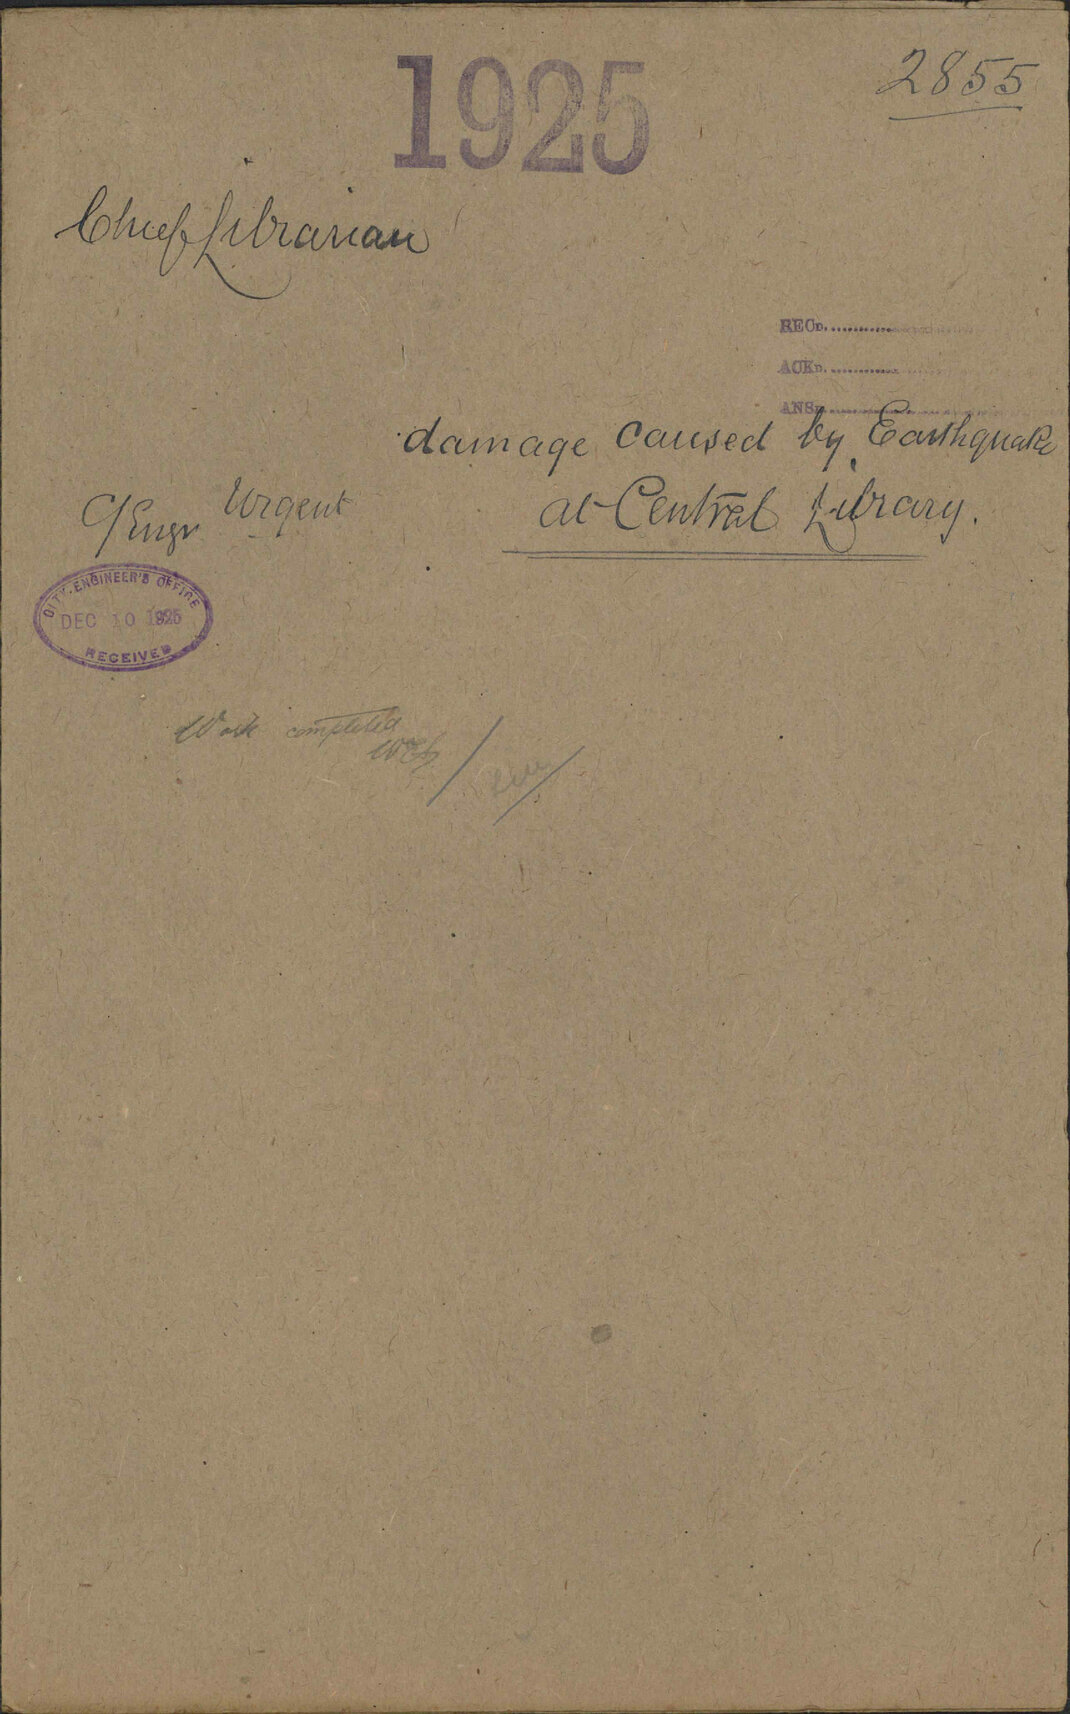 1925
2855
Chief Librarian
RECD.
ACKD.
ANSD.
damage caused by Earthquake
at Central Library.
C/Engr Urgent
CITY ENGINEER'S OFFICE
DEC 10 1925
RECEIVED
Work completed